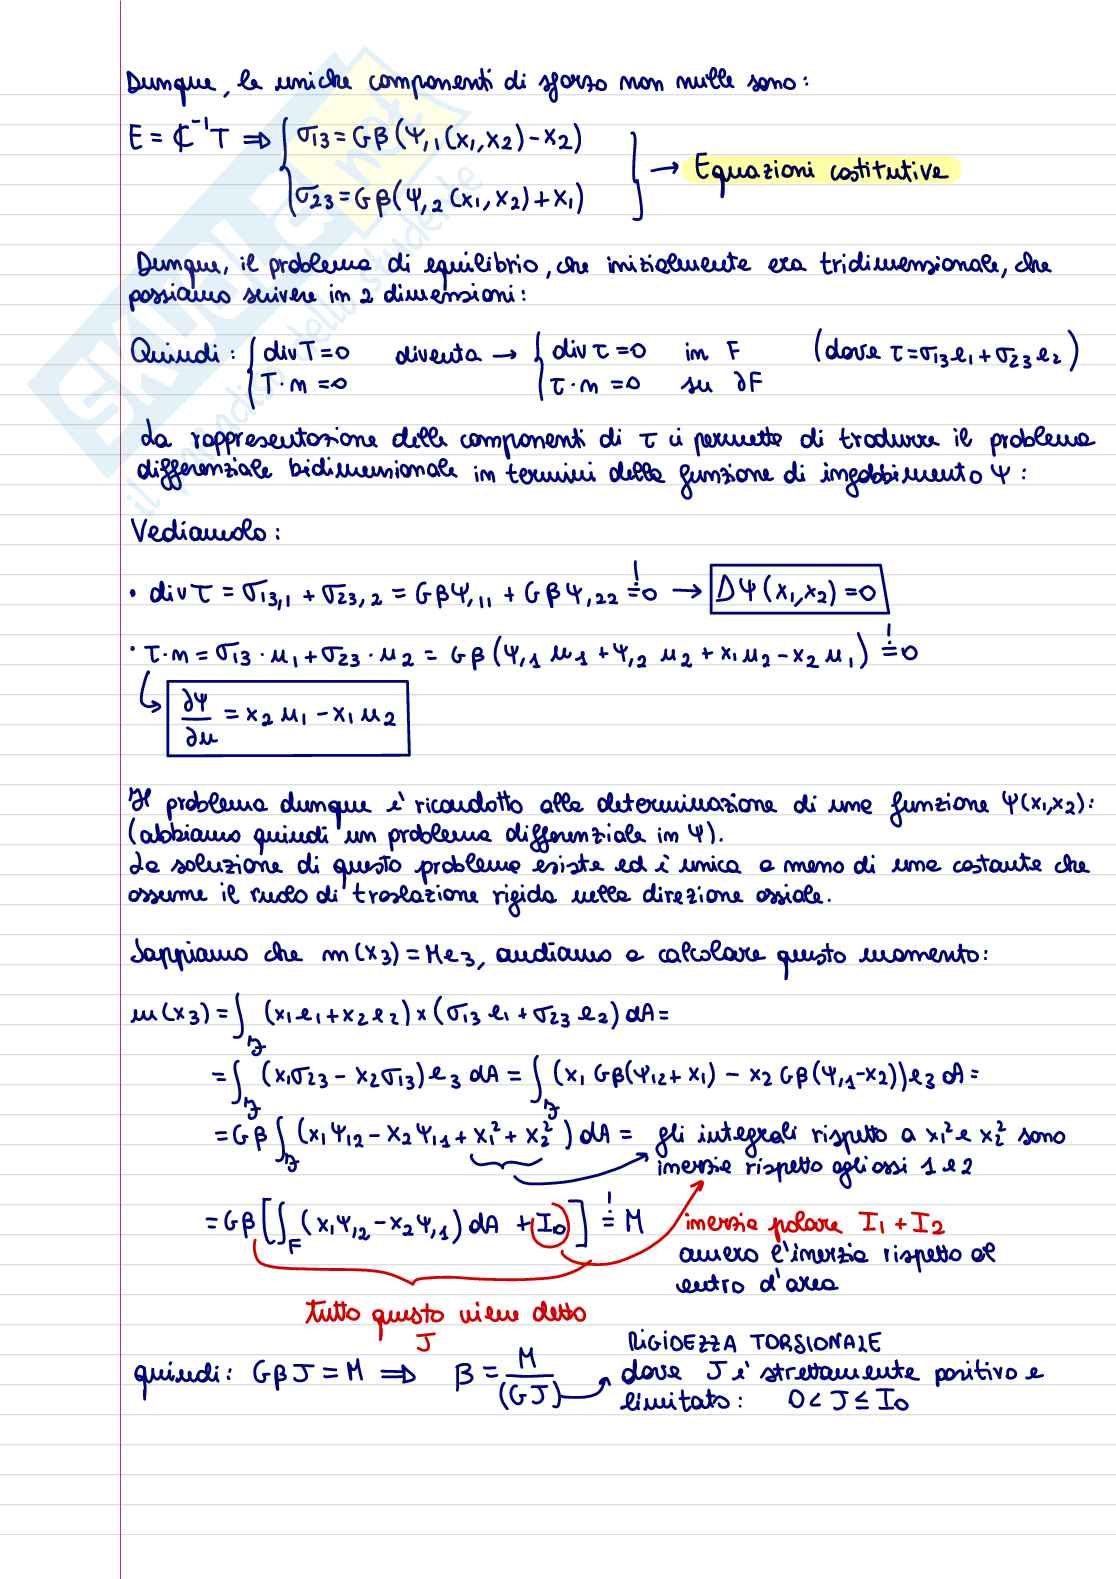 Dunque, le uniche componenti di sforzo non nulle sono:
E = ℂ⁻¹T ⇒ { σ13 = Gβ(Ψ,1(x1,x2) - x2)
σ23 = Gβ(Ψ,2(x1,x2) + x1) } → Equazioni costitutive
Dunque, il problema di equilibrio, che inizialmente era tridimensionale, che
possiamo scrivere in 2 dimensioni:
Quindi: { divT = 0 diventa → { divτ = 0 in F (dove τ = σ13 e1 + σ23 e2)
T·n = 0 τ·n = 0 su ∂F
La rappresentazione delle componenti di τ ci permette di tradurre il problema
differenziale bidimensionale in termini della funzione di ingobbimento Ψ:
Vediamolo:
• divτ = σ13,1 + σ23,2 = GβΨ,11 + GβΨ,22 != 0 → ΔΨ(x1,x2) = 0
• τ·n = σ13·n1 + σ23·n2 = Gβ(Ψ,1 n1 + Ψ,2 n2 + x1n2 - x2n1) != 0
↳ ∂Ψ/∂n = x2 n1 - x1 n2
Il problema dunque è ricondotto alla determinazione di una funzione Ψ(x1,x2):
(abbiamo quindi un problema differenziale in Ψ).
La soluzione di questo problema esiste ed è unica a meno di una costante che
assume il ruolo di traslazione rigida nella direzione assiale.
Sappiamo che m(x3) = Me3, andiamo a calcolare questo momento:
m(x3) = ∫F (x1e1 + x2e2) × (σ13 e1 + σ23 e2) dA =
= ∫F (x1σ23 - x2σ13) e3 dA = ∫F (x1 Gβ(Ψ,2 + x1) - x2 Gβ(Ψ,1 - x2)) e3 dA =
= Gβ ∫F (x1Ψ,2 - x2Ψ,1 + x1² + x2²) dA = gli integrali rispetto a x1² e x2² sono
inerzie rispetto agli assi 1 e 2
= Gβ [∫F (x1Ψ,2 - x2Ψ,1) dA + I0] != M inerzia polare I1 + I2
ovvero l'inerzia rispetto al
centro d'area
tutto questo viene detto
J
RIGIDEZZA TORSIONALE
quindi: GβJ = M ⇒ β = M/(GJ) → dove J è strettamente positivo e
limitato: 0 < J ≤ I0
SKUOLA.net
il mondo dello studente